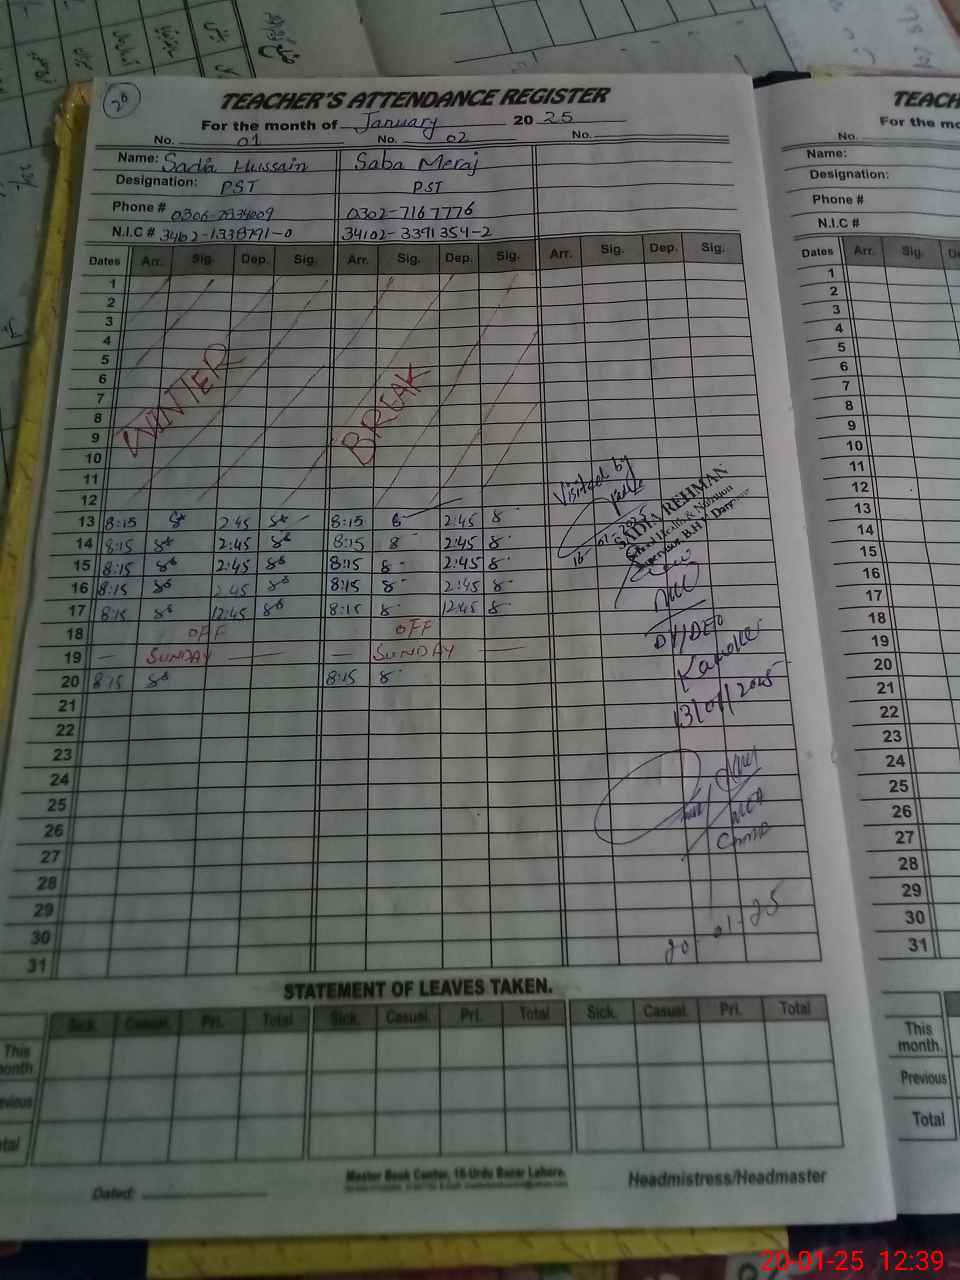 20
TEACHER'S ATTENDANCE REGISTER
For the month of January 2025
No. 01 No. 02 No.
Name: Sadia Hussain Saba Meraj
Designation: PST PST
Phone # 0302-7167776
N.I.C # 34102-3391354-2
Dates Arr. Sig. Dep. Sig. Arr. Sig. Dep. Sig. Arr. Sig. Dep. Sig.
1
2
3
4
5
6
7
8
9
10
11
12
WINTER BREAK
13 8:15 2:45 8:15 2:45
14 8:15 2:45 8:15 2:45
15 8:15 2:45 8:15 2:45
16 8:15 2:45 8:15 2:45
17 8:15 12:45 8:15 12:45
18 OFF OFF
19 SUNDAY SUNDAY
20 8:15 8:15
21
22
23
24
25
26
27
28
29
30
31
Visited by
SADIA REHMAN
School Health & Nutrition
Supervisor B.H.U
DY/DEO
Kamoke
13/01/2025
20-01-25
STATEMENT OF LEAVES TAKEN.
Sick. Casual. Pri. Total Sick. Casual. Pri. Total Sick. Casual. Pri. Total
This month.
Previous
Total
Master Book Center, 16-Urdu Bazar Lahore.
Dated: Headmistress/Headmaster
TEACH
For the mo
No.
Name:
Designation:
Phone #
N.I.C #
Dates Arr. Sig. De
1
2
3
4
5
6
7
8
9
10
11
12
13
14
15
16
17
18
19
20
21
22
23
24
25
26
27
28
29
30
31
This month.
Previous
Total
20-01-25 12:39